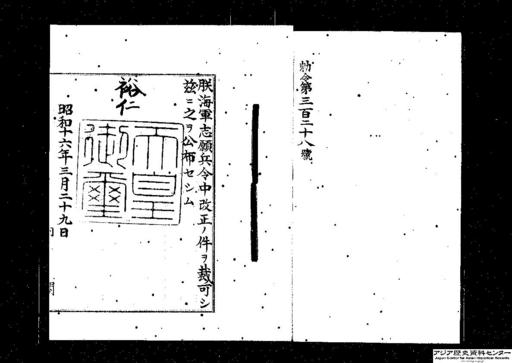 勅令第三百二十八號
朕海軍志願兵令中改正ノ件ヲ裁可シ
玆ニ之ヲ公布セシム
裕仁
天皇御璽
昭和十六年三月二十九日
アジア歴史資料センター
Japan Center for Asian Historical Records